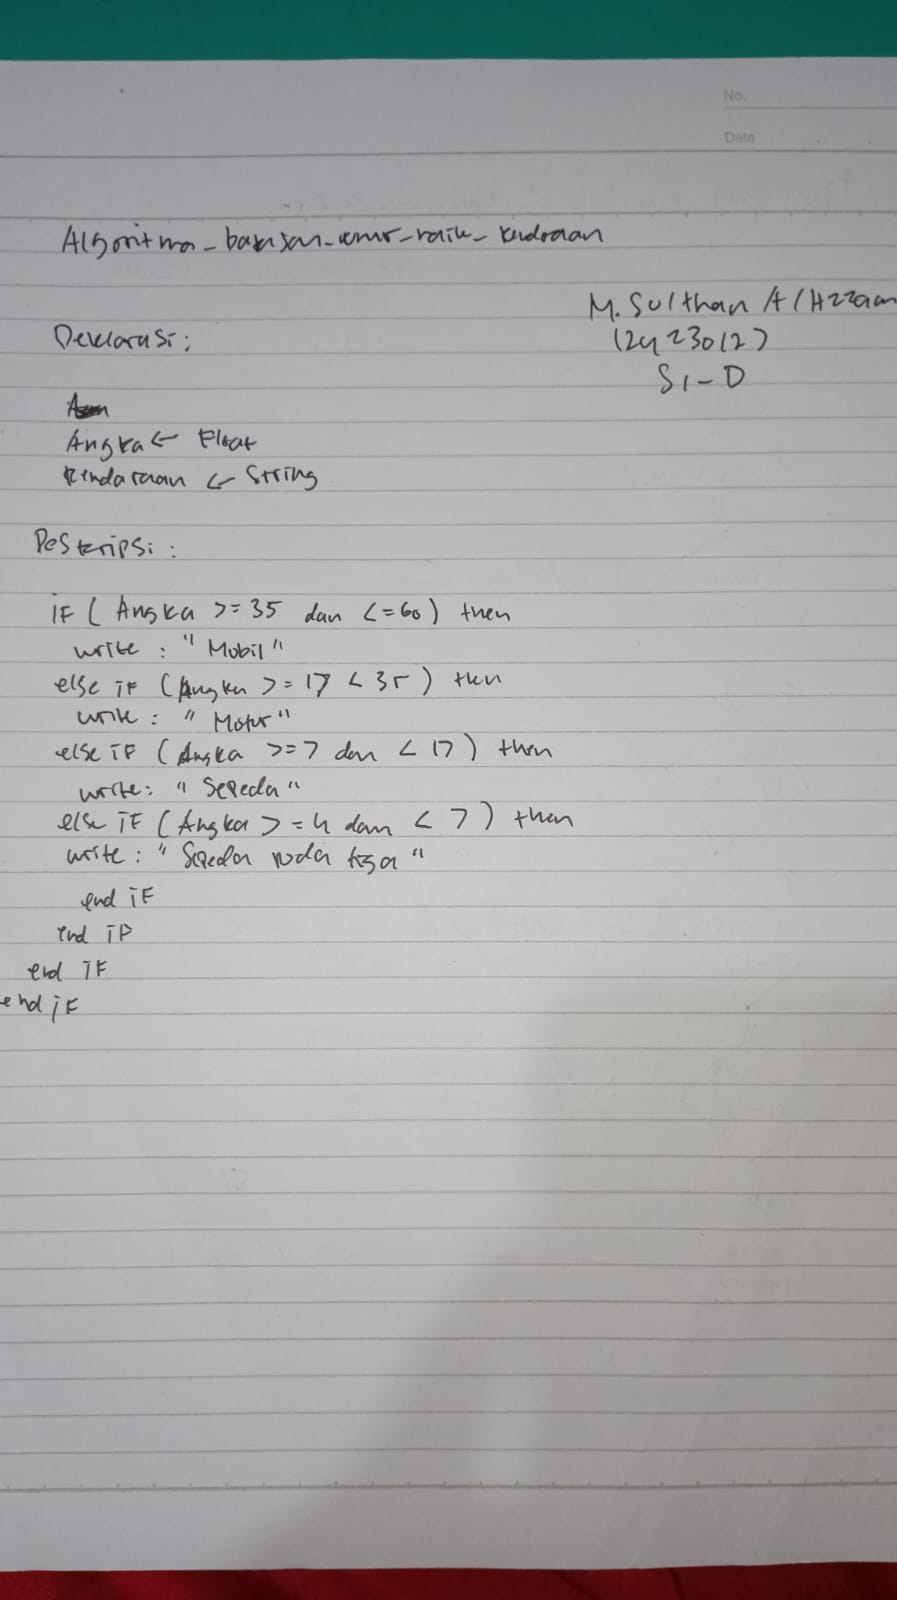 No.
Date
Algoritma_batasan_umur_naik_kendraan
M. Sulthan Al Azzam
124230127
SI-D
Deklarasi:
Angka <- Float
Kendaraan <- String
Deskripsi:
if (Angka >= 35 dan <= 60) then
write : "Mobil"
else if (Angka >= 17 < 35) then
write : "Motor"
else if (Angka >= 7 dan < 17) then
write: "Sepeda"
else if (Angka >= 4 dan < 7) then
write : "Sepeda roda tiga"
end if
end if
end if
end if